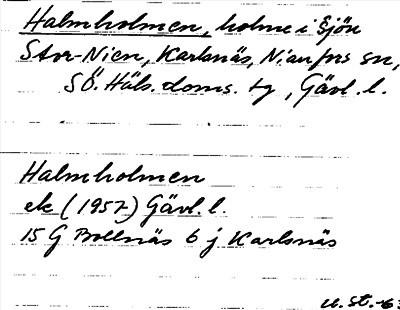 Halmholmen, holme i sjön
Stor-Nien, Karlsnäs, Nianfors sn,
SÖ. Häls. doms. tg, Gävl. l.
Halmholmen
ek (1957) Gävl. l.
15 G Bollnäs 6 j Karlsnäs
U. St. -63